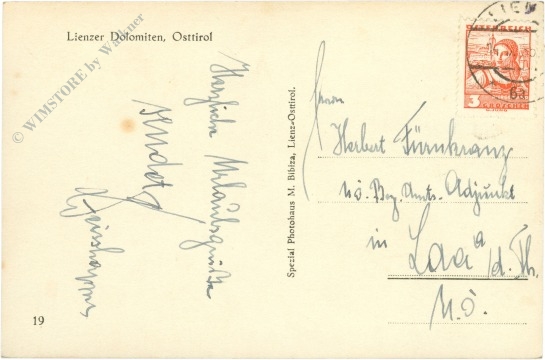 Lienzer Dolomiten, Osttirol
© WIMSTORE by Wallner
Herzliche Urlaubsgrüße
19
Spezial Photohaus M. Bibiza, Lienz-Osttirol.
LIEN
6a
ÖSTERREICH
3 GROSCHEN
Herrn
Herbert Fürnkranz
nö. Bez. Amts-Adjunkt
in Laa a/d. Th.
N.Ö.